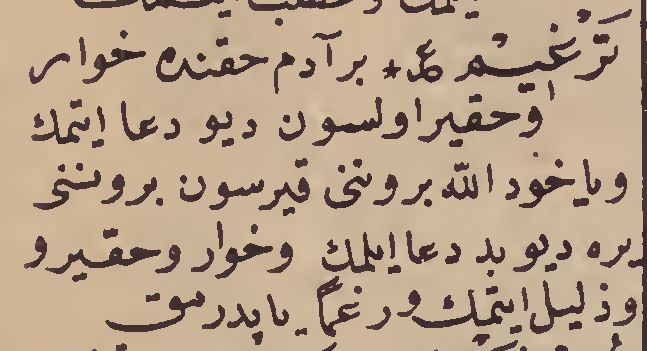 ترغيم ع * بر آدم حقنده خوار
و حقير اولسون ديو دعا ايتمك
و ياخود الله بروننى قيرسون بروننى
يره ديو بد دعا ايلمك و خوار و حقير و
و ذليل ايتمك و رغما يا پدرتق